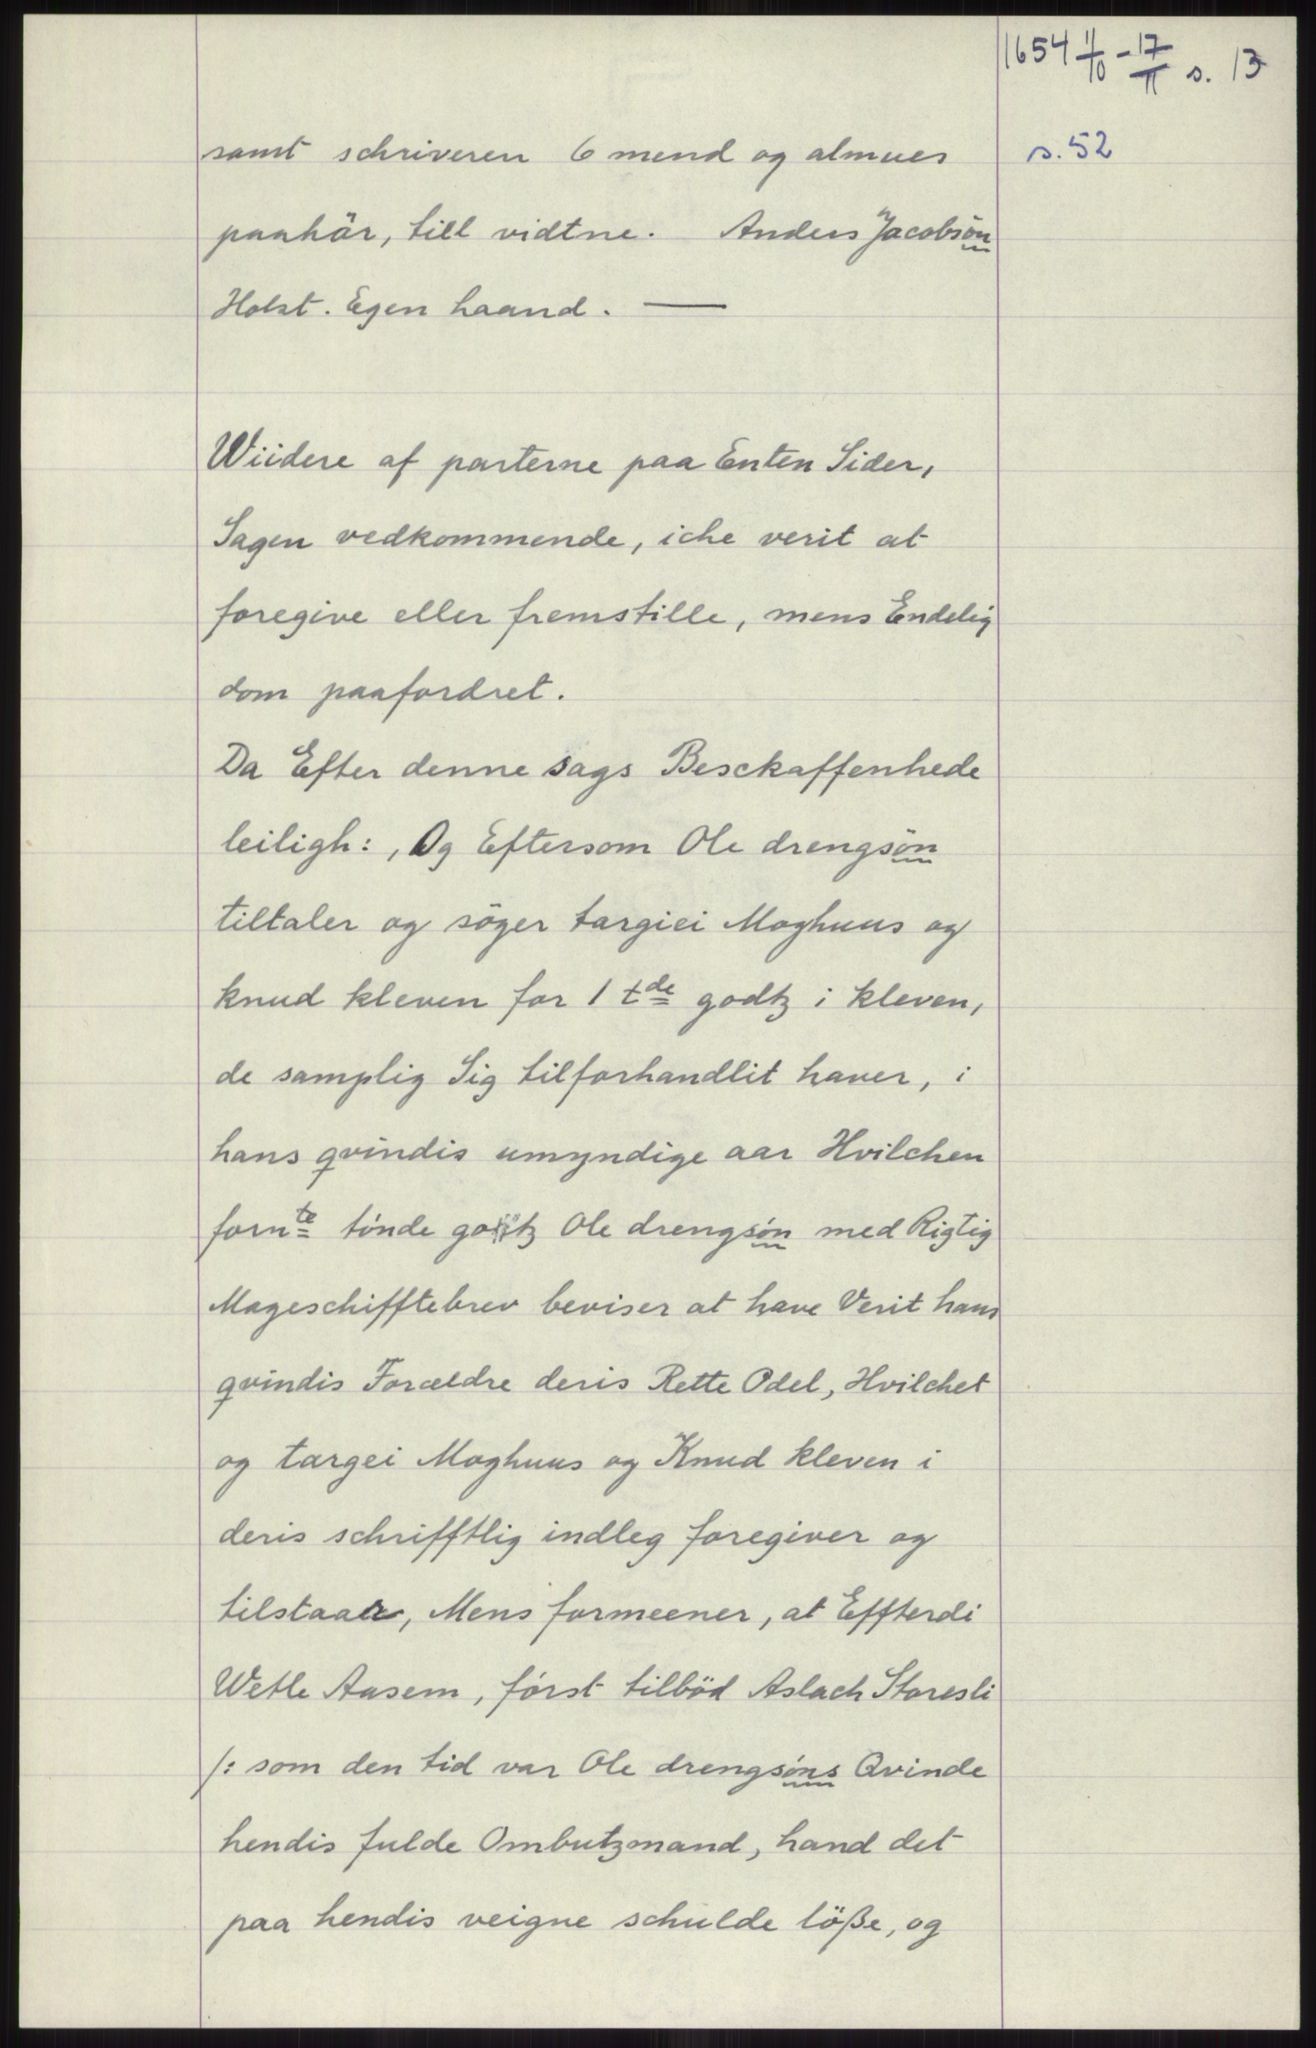 1654 11/10 - 17/11 s. 13
samt schriveren 6 mend og almues
s. 52
paahör, till vidtne. Anders Jacobsön
Holst. Egen haand. —
Wiidere af parterne paa Enten Sider,
Sagen vedkommende, iche verit at
foregive eller fremstille, mens Endelig
dom paafordret.
Da Efter denne sags Besckaffenhede
leiligh:, Og Eftersom Ole drengsön
tiltaler og söger targiei Moghuus og
knud kleven for 1 tde godtz i kleven,
de samplig Sig tilforhandlit haver, i
hans qvindis umyndige aar Hvilchen
fornte tönde godtz Ole drengsön med Rigtig
Mageschifftebrev beviser at have Verit hans
qvindis Forældre deris Rette Odel, Hvilchet
og targei Moghuus og Knud kleven i
deris schrifftlig indleg foregiver og
tilstaar, Mens formeener, at Effterdi
Wetle Aasem, först tilböd Aslach Storesli
/: som den tid var Ole drengsöns Qvinde
hendis fulde Ombutzmand, hand det
paa hendis veigne schulde löße, og